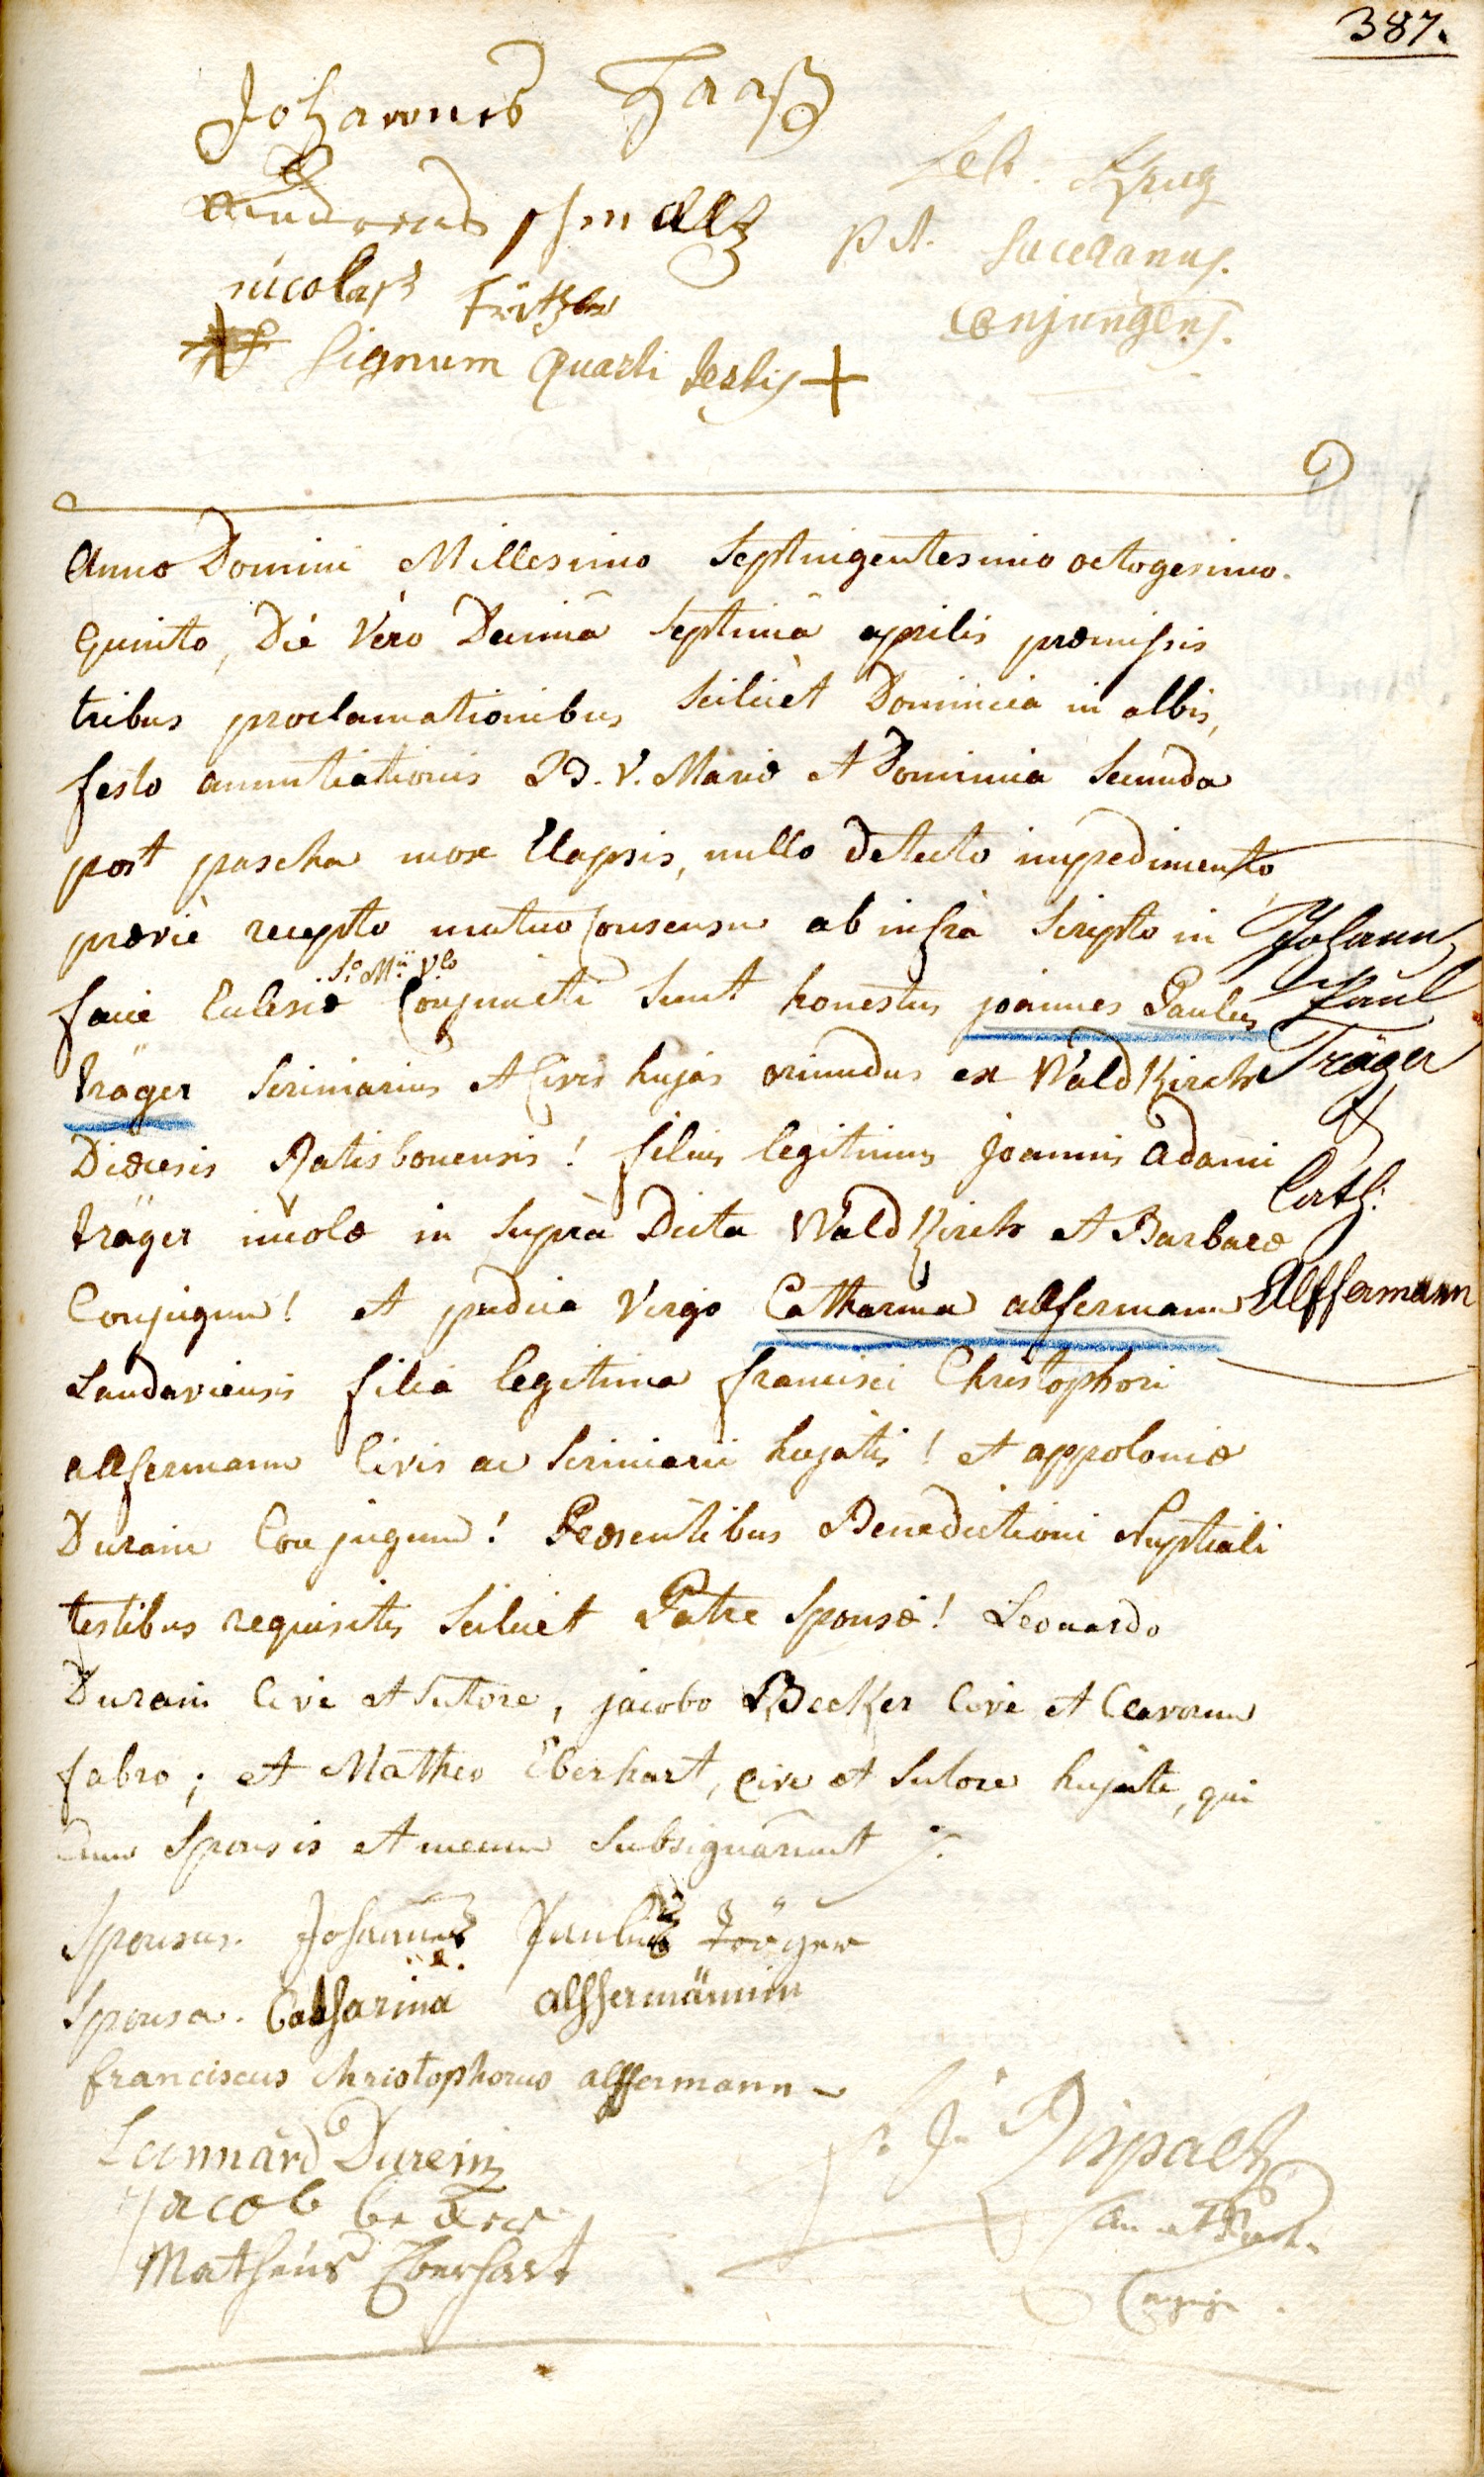 387.
Johannes Haaß
Andreas schmaltz
Seb. Krug
p.t. Sacellanus.
nicolaß fritzler
conjungens.
Signum quarti testis +
Anno Domini Millesimo Septingentesimo octogesimo.
Quinto, Die Vero Decimâ Septimâ aprilis præmissis
tribus proclamationibus scilicet Dominica in albis,
festo annuntiationis B. V. Mariæ et Dominica Secunda
post pascha mox Elapsis, nullo detecto impedimento
prævie recepto mutuo Consensu ab infrà scripto in
So. Mii. Vlo
facie Eclesiæ Conjuncti Sunt honestus joannes Paulus
träger Scriniarius et Civis hujas oriundus ex WaldKirch
Diœcesis Ratisbonensis! filius legitimus joannis adami
träger incolæ in supra Dicta WaldKirch et Barbaræ
Conjugum! et pudica Virgo Catharina alffermann
Johann
Paul
Träger
&
Cath:
Alffermann
Landaviensis filia legitima francisci Christophori
alffermann Civis ac Scriniarii hujatis! et appoloniæ
Durain Conjugum! Præsentibus Benedictioni Nuptiali
testibus requisitis scilicet Patre Sponsæ! Leonardo
Durain Cive et Sutore, jacobo Becker Cive et Clavorum
fabro; et Matheo Eberhart, cive et Sutore hujate, qui
cum Sponsis et mecum Subsignârunt
Sponsus. Johannes Paulus Tröger
Sponsa. Catharina alffermännin
franciscus christophorus alffermann
Lennard Durein
Jacob becker
Matheus Eberhart